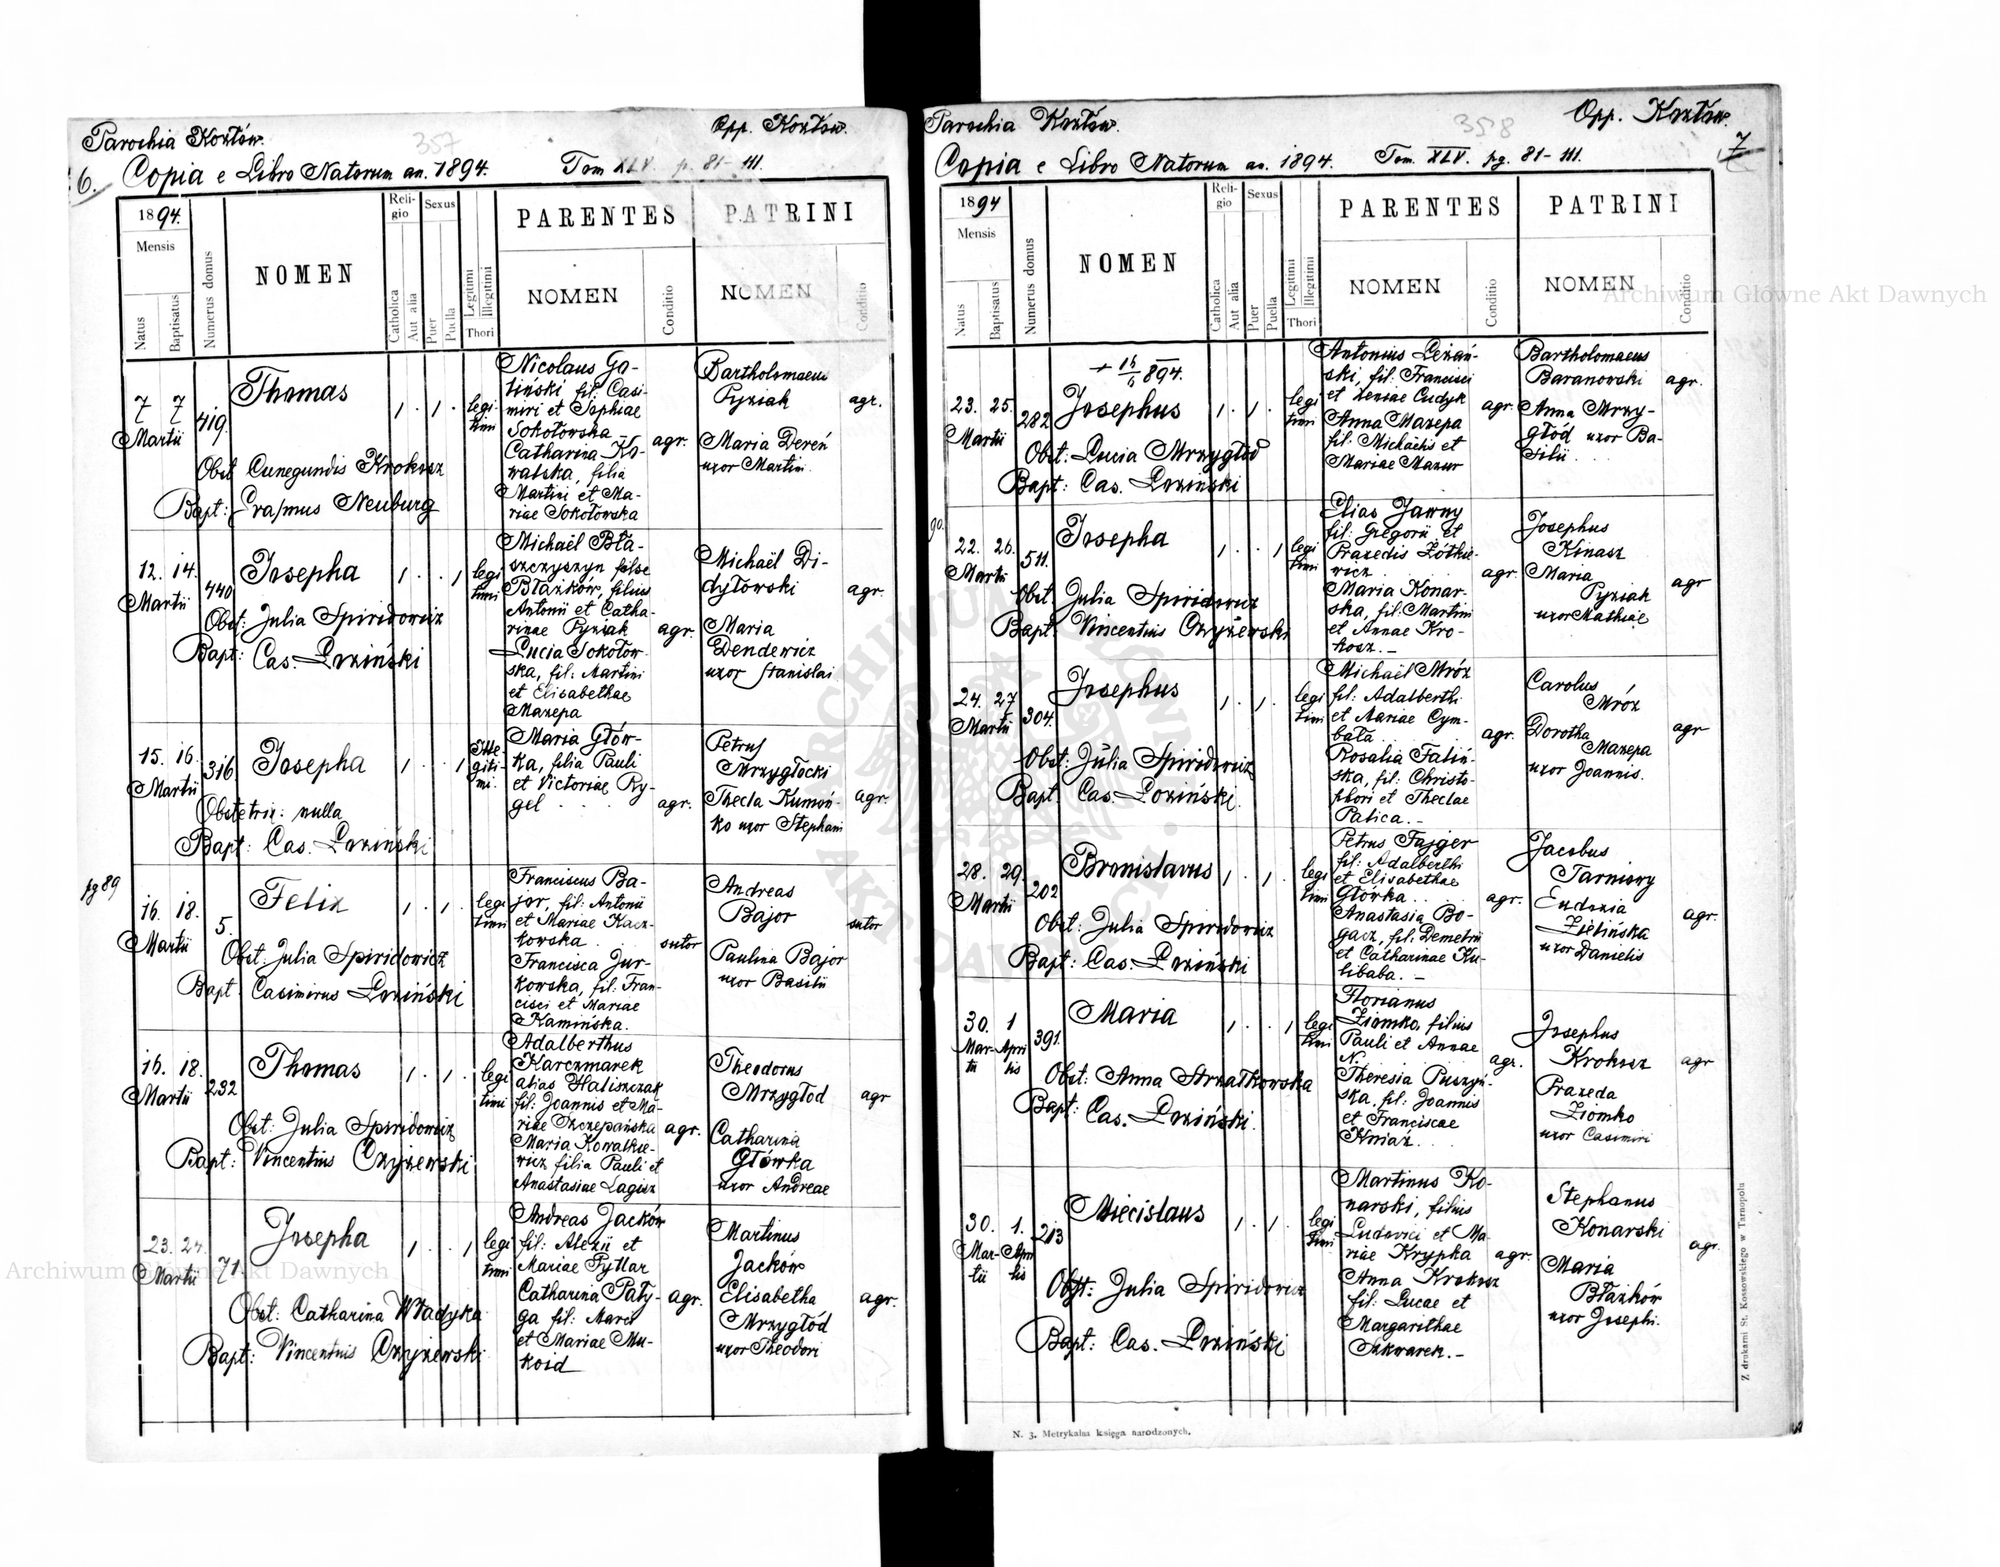 Parochia Kozłów.
357
Opp. Kozłów.
6. Copia e Libro Natorum an. 1894. Tom XLV. p. 81-111.
1894.
Mensis
Natus
Baptisatus
Numerus domus
NOMEN
Reli-
gio
Catholica
Aut alia
Sexus
Puer
Puella
Legitimi
Illegitimi
Thori
PARENTES
NOMEN
Conditio
PATRINI
NOMEN
Conditio
7 7
Martii
419.
Thomas
1 . 1 .
legi
timi
Obst Cunegundis Krokosz
Bapt: Erasmus Neuburg
Nicolaus Ga-
liński fil. Casi-
miri et Sophiae
Sokołowska
Catharina Ko-
walska, filia
Martini et Ma-
riae Sokołowska
agr.
Bartholomaeus
Pyziak
Maria Dereń
uxor Martini.
agr.
12. 14.
Martii
440
Josepha
1 . . 1
legi
timi
Obst: Julia Spiridowicz
Bapt: Cas. Łoziński
Michaël Bła-
szczyszyn false
Błazków, filius
Antonii et Catha-
rinae Pyziak
Lucia Sokołow-
ska, fil: Martini
et Elisabethae
Mazepa
agr.
Michaël Di-
dyłowski
Maria
Dendewicz
uxor Stanislai
agr.
15. 16.
Martii
316
Josepha
1 . . 1
Ille-
giti-
mi.
Obstetrix: nulla
Bapt: Cas. Łoziński
Maria Głów-
ka, filia Pauli
et Victoriae Ry-
gel
agr.
Petrus
Mrzygłocki
Thecla Kumoń-
ko uxor Stephani
agr.
pg 89
16. 18.
Martii
5.
Felix
1 . 1 .
legi
timi
Obst: Julia Spiridowicz
Bapt. Casimirus Łoziński
Franciscus Ba-
jor, fil: Antonii
et Mariae Kacz-
kowska
Francisca Jur-
kowska, fil. Fran-
cisci et Mariae
Kamińska.
sutor
Andreas
Bajor
Paulina Bajor
uxor Basilii
sutor
16. 18.
Martii
232
Thomas
1 . 1 .
legi
timi
Obst: Julia Spiridowicz
Bapt: Vincentius Czyżewski
Adalberthus
Karczmarek
alias Haliszczak
fil: Joannis et Ma-
riae Szczepańska
Maria Kowalkie-
wicz filia Pauli et
Anastasiae Lagisz
agr.
Theodorus
Mrzygłod
Catharina
Główka
uxor Andreae
agr
23. 24.
Martii
71.
Josepha
1 . . 1
legi
timi
Obst: Catharina Władyka
Bapt: Vincentius Czyżewski
Andreas Jacków
fil: Alexii et
Mariae Pytlar
Catharina Pały-
ga fil: Marci
et Mariae Mu-
koid
agr.
Martinus
Jacków
Elisabetha
Mrzygłód
uxor Theodori
agr.
Parochia Kozłów.
358
Opp. Kozłów.
7
Copia e Libro Natorum an. 1894. Tom. XLV. pg. 81-111.
1894
Mensis
Natus
Baptisatus
Numerus domus
NOMEN
Reli-
gio
Catholica
Aut alia
Sexus
Puer
Puella
Legitimi
Illegitimi
Thori
PARENTES
NOMEN
Conditio
PATRINI
NOMEN
Conditio
23. 25.
Martii
282
Josephus
1 . 1 .
legi
timi
Obst: Lucia Mrzygłod
Bapt: Cas. Łoziński
Antonius Leżań-
ski, fil: Francisci
et Xeniae Cudyk
Anna Mazepa
fil: Michaëlis et
Mariae Mazur
agr.
Bartholomaeus
Baranowski
Anna Mrzy-
głód uxor Ba-
silii
agr.
90.
22. 26.
Martii
511.
Josepha
1 . . 1
legi
timi
Obst. Julia Spiridowicz
Bapt: Vincentius Czyżewski
Elias Jawny
fil: Gregorii et
Praxedis Żółkie-
wicz
Maria Konar-
ska, fil: Martini
et Annae Kro-
kosz.-
agr.
Josephus
Kinasz
Maria
Pyziak
uxor Mathiae
agr
24. 27
Martii
304.
Josephus
1 . 1 .
legi
timi
Obst: Julia Spiridowicz
Bapt. Cas. Łoziński.
Michaël Mróz
fil: Adalberthi
et Mariae Cym-
bała
Rosalia Faliń-
ska, fil: Christo-
phori et Theclae
Palica.-
agr.
Carolus
Mróz
Dorotha
Mazepa
uxor Joannis.
agr
28. 29.
Martii
202
Bronislavus
1 . 1 .
legi
timi
Obst: Julia Spiridowicz
Bapt: Cas. Łoziński
Petrus Fajger
fil: Adalberthi
et Elisabethae
Główka
Anastasia Bo-
gacz, fil. Demetrii
et Catharinae Ku-
libaba.-
agr.
Jacobus
Tarnowy
Eudoxia
Zielińska
uxor Danielis
agr.
30. 1
Mar- Apri
tii lis
391.
Maria
1 . . 1
legi
timi
Obst: Anna Strzałkowska
Bapt: Cas. Łoziński.
Florianus
Ziomko, filius
Pauli et Annae
N.
Theresia Puszyń-
ska, fil: Joannis
et Franciscae
Kniaź.
agr.
Josephus
Krokosz
Praxeda
Ziomko
uxor Casimiri
agr
30. 1.
Mar- Apri
tii lis
213
Miecislaus
1 . 1 .
legi
timi
Obst: Julia Spiridowicz
Bapt: Cas. Łoziński
Martinus Ko-
narski, filius
Ludovici et Ma-
riae Krypka
Anna Krokosz
fil: Lucae et
Margarithae
Skwarek.-
agr.
Stephanus
Konarski
Maria
Błazków
uxor Josephi.
agr.
N. 3. Metrykalna księga narodzonych.
Z drukarni St. Kossowskiego w Tarnopolu
Archiwum Główne Akt Dawnych
Archiwum Główne Akt Dawnych